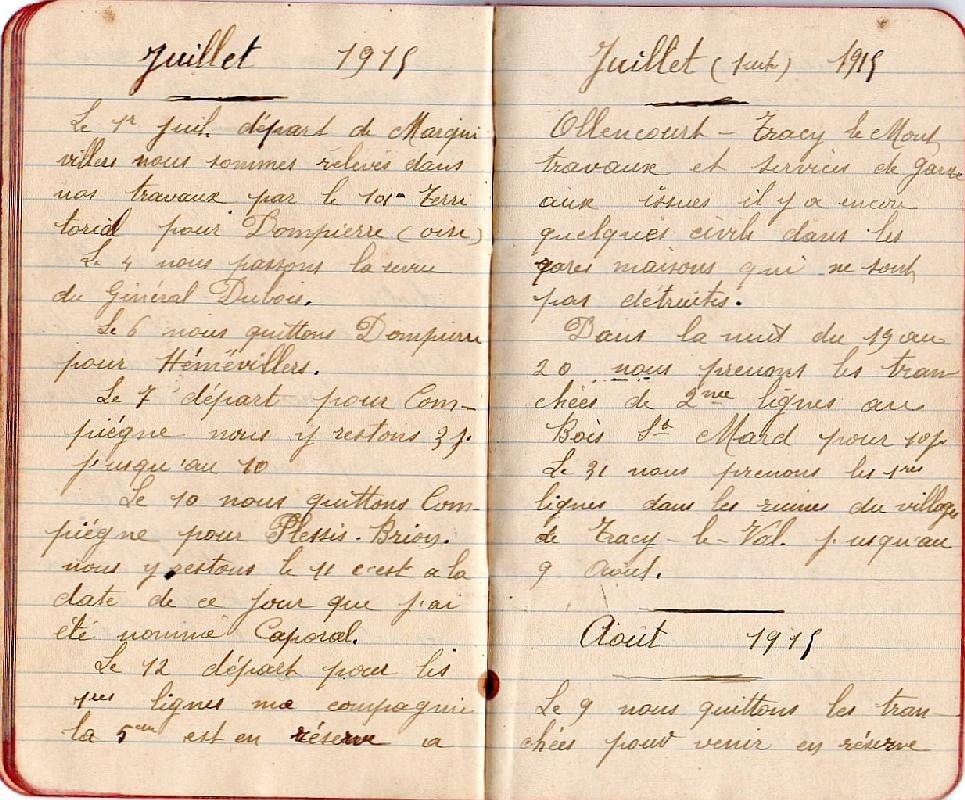 Juillet 1915
Le 1er juil. départ de Marqui
villers nous sommes relevés dans
nos travaux par le Terri
torial pour Dompierre (oise)
Le 4 nous passons la revue
du Général Dubois.
Le 6 nous quittons Dompierre
pour Héménvillers.
Le 7 départ pour Com-
piègne nous y restons 3 j.
jusqu'au 10
Le 10 nous quittons Com-
piègne pour Plessis-Brion.
nous y restons le 11 c'est a la
date de ce jour que j'ai
été nommé Caporal.
Le 12 départ pour les
1res lignes ma compagnie
la 5eme est en réserve a
Juillet (suite) 1915
Ollencourt - Tracy le Mont
travaux et services de garde
aux issues il y a encore
quelques civils dans les
maisons qui ne sont
pas détruites.
Dans la nuit du 19 au
20 nous prenons les tran-
chées de 2mes lignes au
Bois St Mard pour 10 j.
Le 31 nous prenons les 1res
lignes dans les ruines du village
de Tracy-le-Val jusqu'au
9 Aout.
Aout 1915
Le 9 nous quittons les tran-
chées pour venir en réserve